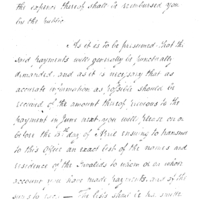 the expence thereof shall be reimbursed you
by the public
As it is to be presumed that the
said payments will generally be punctually
demanded, and as it is necessary that as
accurate information as possible should be
received of the amount thereof previous to the
payment in June next you will please on or
before the day of ensuing to transmit
to this Office an exact list of the names and
residence of the Invalids to whom or on whose
account you have made payments, and of the
The lists shall in like manner